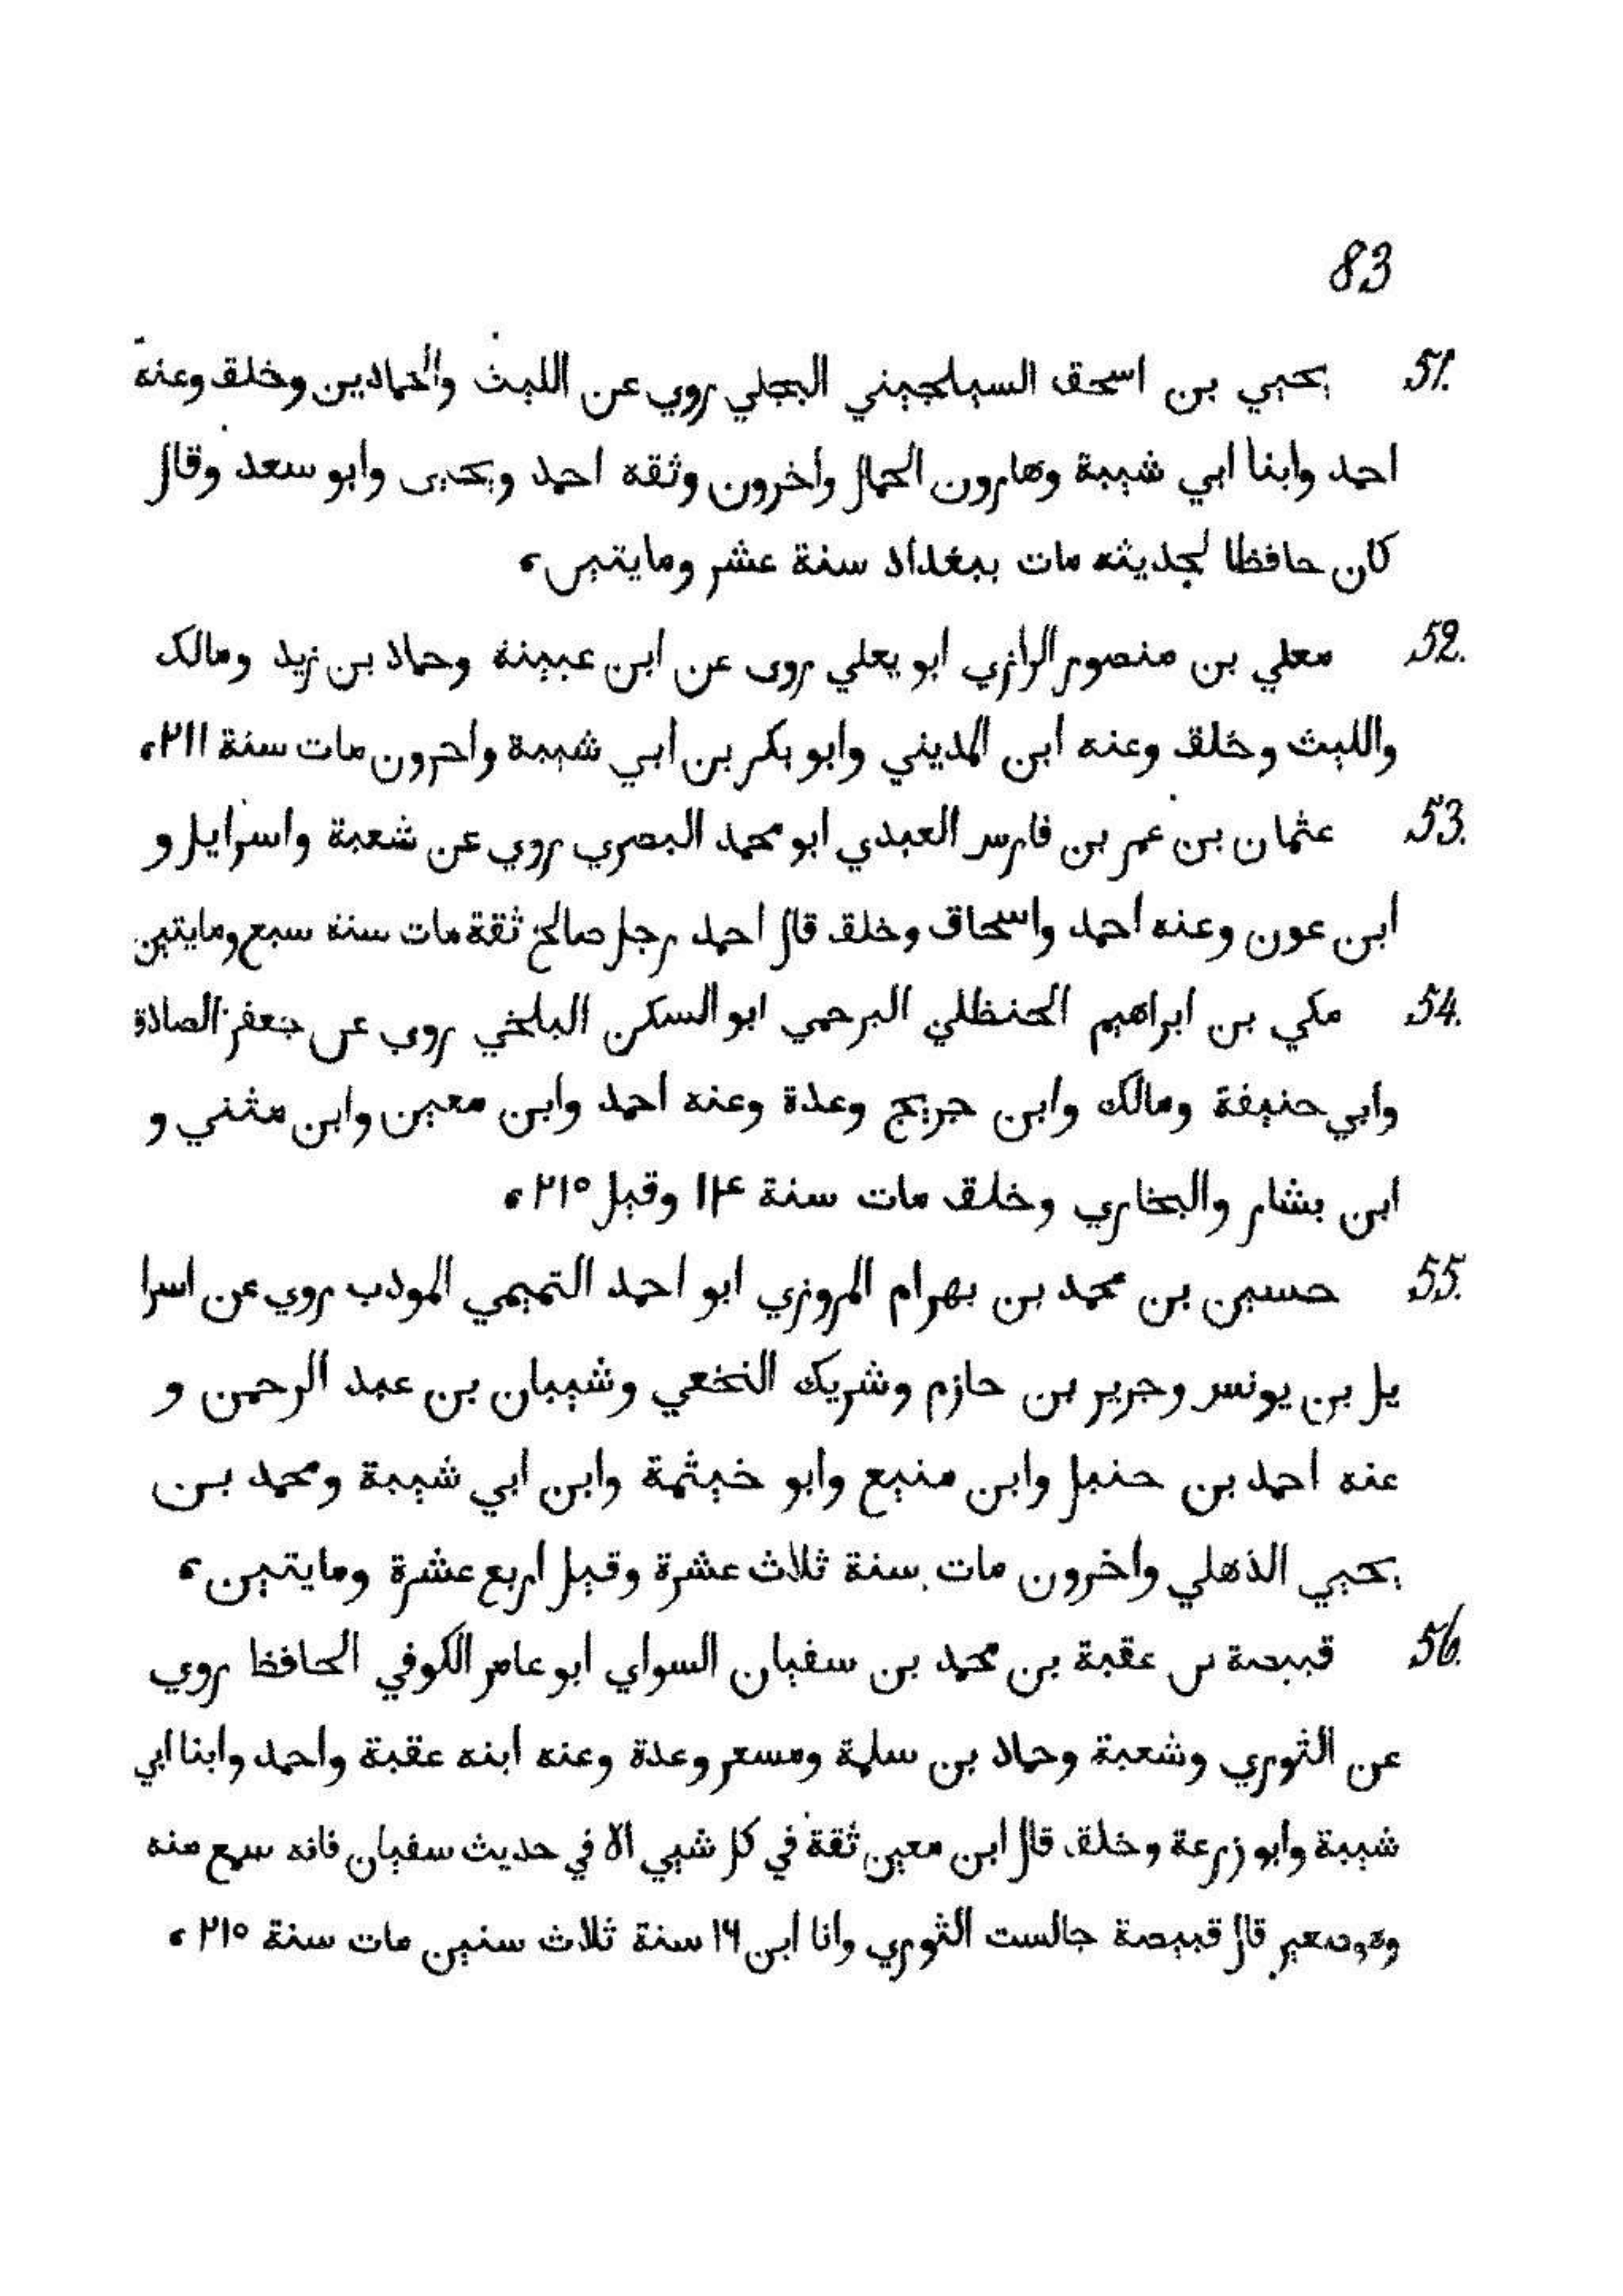 83
51. يحيي بن اسحق السيلحيني البجلي روي عن الليث والحمادين وخلق وعنه
احمد وابنا ابي شيبة وهارون الحمال واخرون وثقه احمد ويحيى وابو سعد وقال
كان حافظا لحديثه مات ببغداد سنة عشر ومايتين،
52. معلي بن منصور الرازي ابو يعلي روى عن ابن عيينة وحماد بن زيد ومالك
والليث وخلق وعنه ابن المديني وابو بكر بن ابي شيبة واحرون مات سنة ٢١١،
53. عثمان بن عمر بن فارس العبدي ابو محمد البصري روي عن شعبة واسرايل و
ابن عون وعنه احمد واسحاق وخلق قال احمد رجل صالح ثقة مات سنة سبع ومايتين
54. مكي بن ابراهيم الحنظلي البرحمي ابو السكن البلخي روي عن جعفر الصادق
وابي حنيفة ومالك وابن جريج وعدة وعنه احمد وابن معين وابن مثني و
ابن بشار والبخاري وخلق مات سنة وقيل ٢١٥،
55. حسين بن محمد بن بهرام المروزي ابو احمد التميمي المودب روي عن اسرا
يل بن يونس وجرير بن حازم وشريك النخعي وشيبان بن عبد الرحمن و
عنه احمد بن حنبل وابن منيع وابو خيثمة وابن ابي شيبة ومحمد بن
يحيي الذهلي واخرون مات سنة ثلاث عشرة وقيل اربع عشرة ومايتين،
56. قبيصة بن عقبة بن محمد بن سفيان السواي ابو عامر الكوفي الحافظ روي
عن الثوري وشعبة وحماد بن سلمة ومسعر وعدة وعنه ابنه عقبة واحمد وابنا ابي
شيبة وابو زرعة وخلق قال ابن معين ثقة في كل شيي الا في حديث سفيان فانه سمع منه
وهو صغير قال قبيصة جالست الثوري وانا ابن ١٦ سنة ثلاث سنين مات سنة ٢١٥،